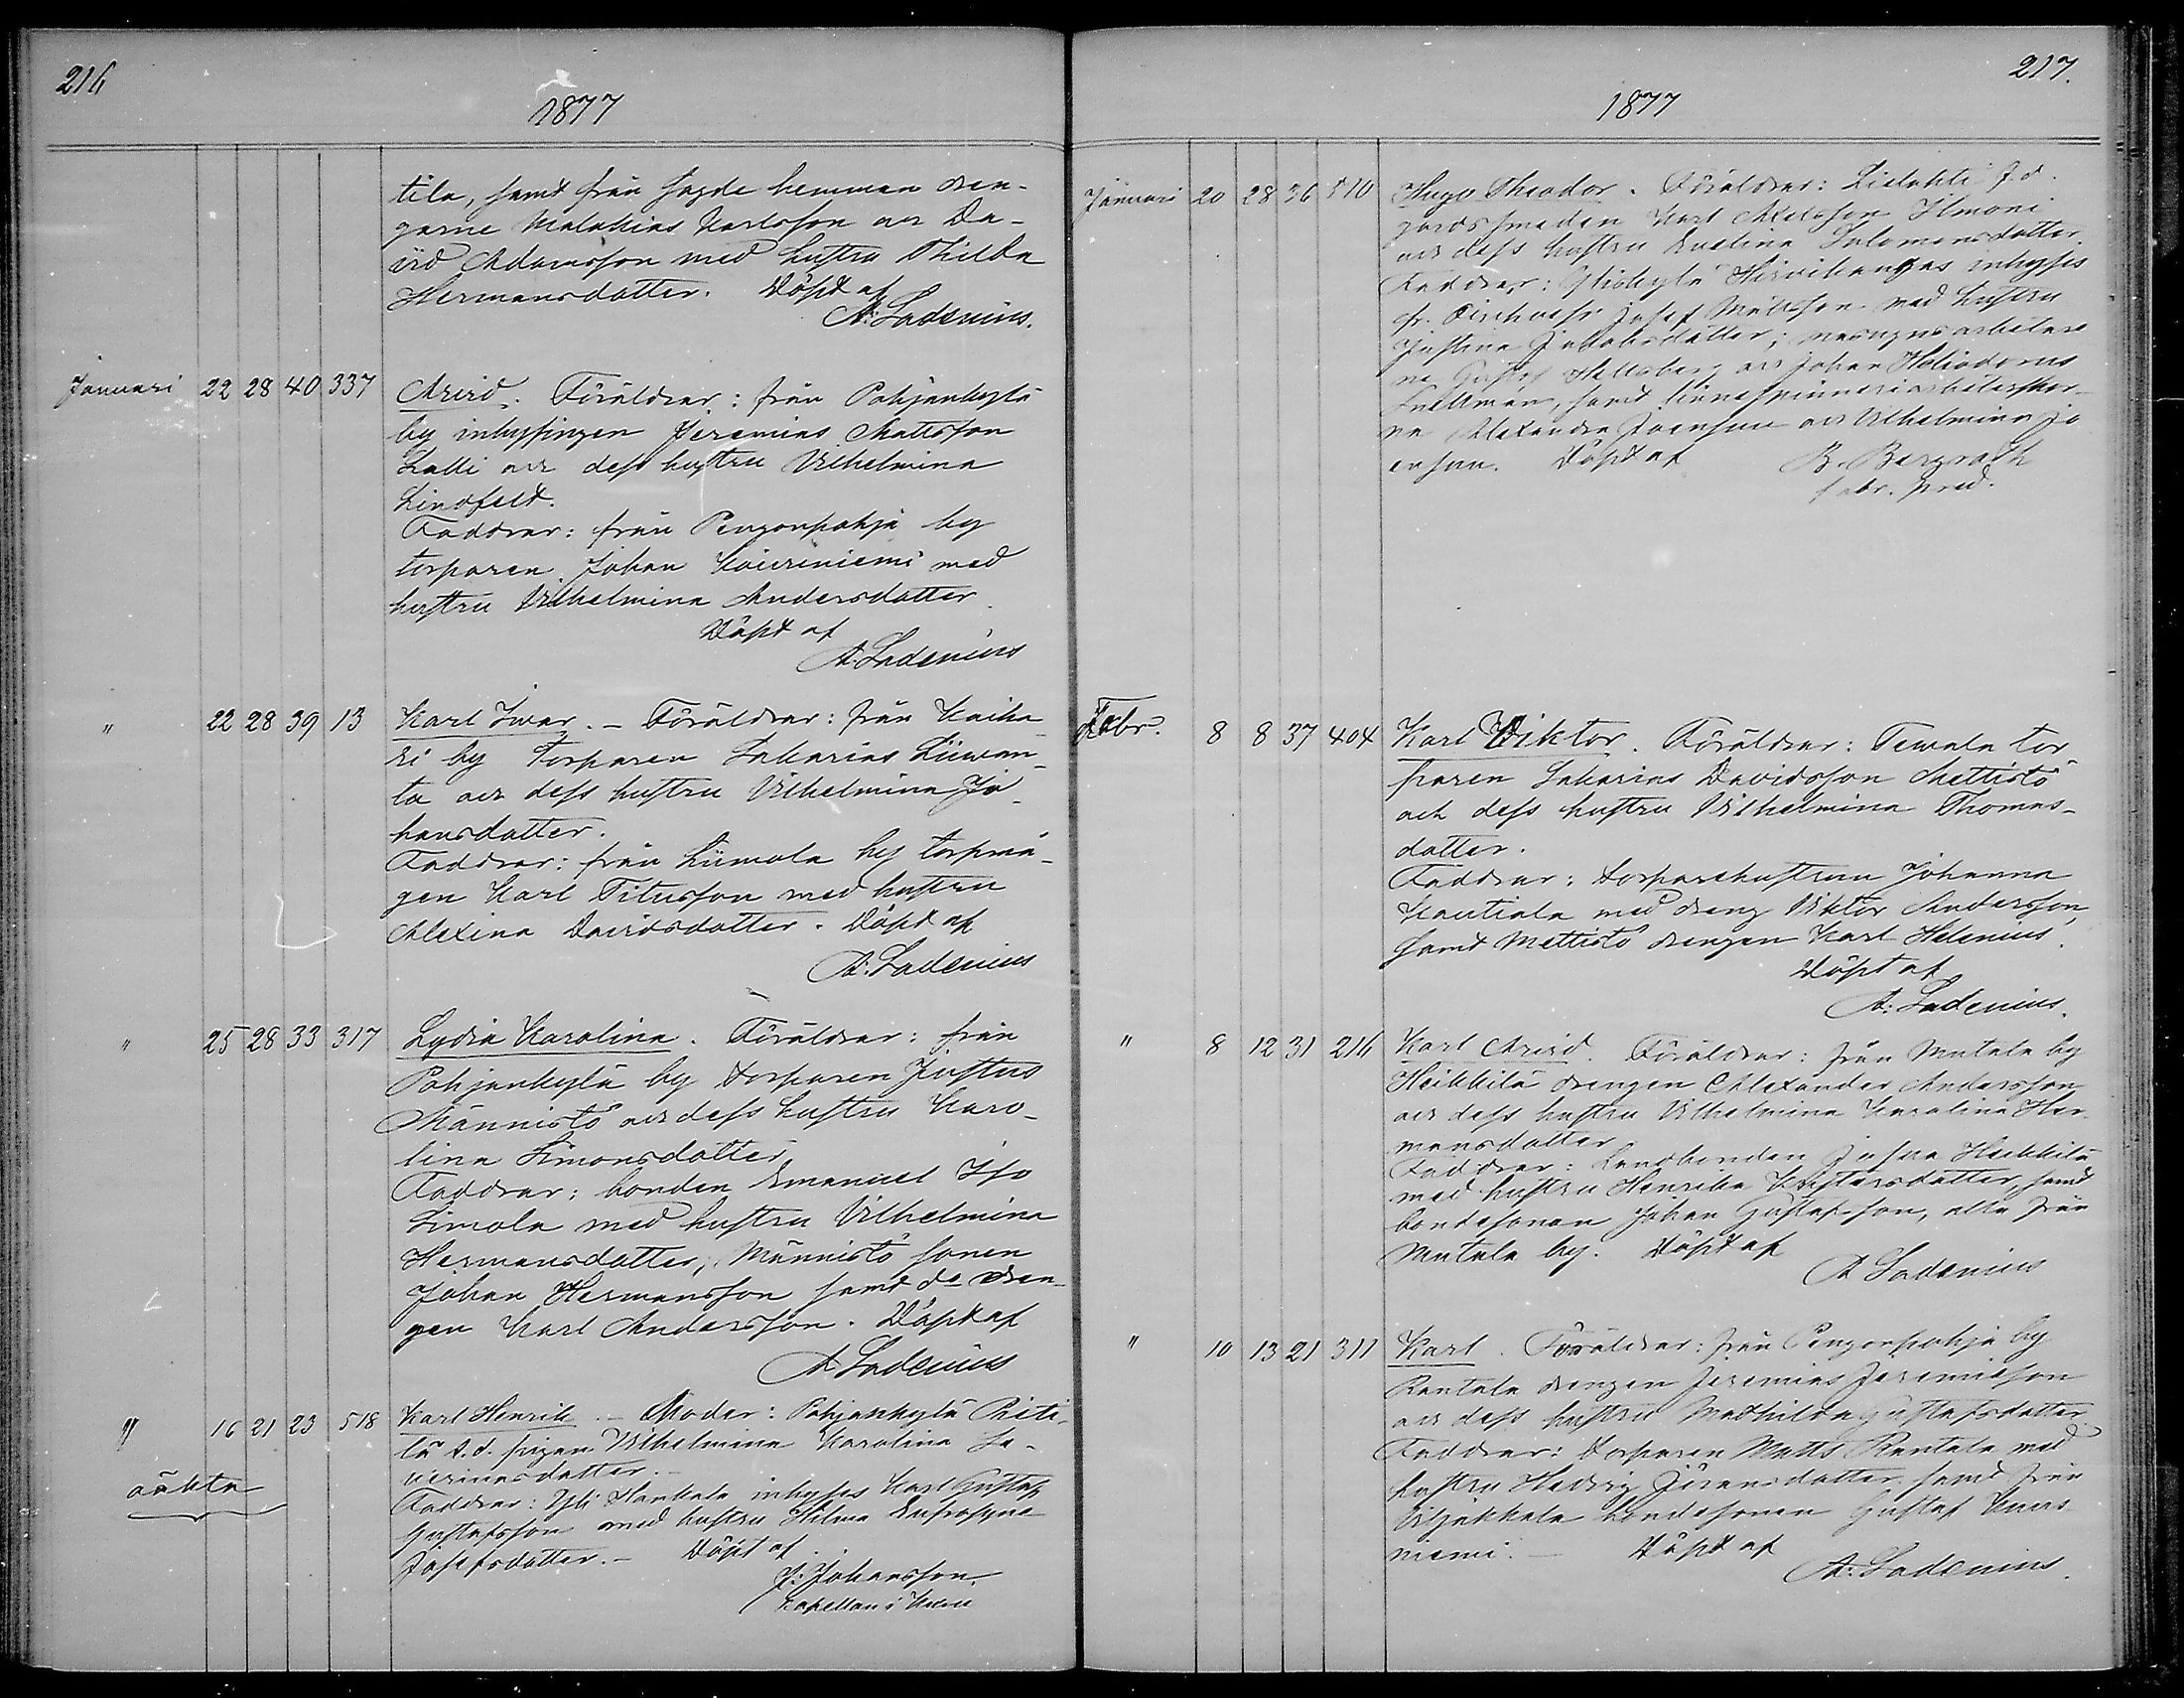 216
1877
tila, samt från sagde hemman dren-
garne Malakias Karlsson och Da-
vid Adamsson med hustru Thilda
Hermansdotter. Döpt af
A: Ladenius.
Januari 22 28 40 337 Arvid. Föräldrar: från Pohjankylä
by inhysingen Jeremias Mattsson
Lalli och dess hustru Vilhelmina
Lindfelt.
Faddrar: från Pengonpohja by
torparen Johan Kauriniemi med
hustru Vilhelmina Andersdotter.
Döpt af
A. Ladenius
" 22 28 39 13 Karl Iwar. – Föräldrar: från Kaiha-
ri by torparen Sakarias Liiwan-
ta och dess hustru Vilhelmina Jo-
hansdotter.
Faddrar: från Liimola by torpmå-
gen Karl Titusson med hustru
Alexina Davidsdotter. Döpt af
A. Ladenius
" 25 28 33 317 Lydia Karolina. Föräldrar: från
Pohjankylä by torparen Justus
Männistö och dess hustru Karo-
lina Simonsdotter
Faddrar: bonden Emanuel Iso
Simola med hustru Vilhelmina
Hermansdotter, Männistö sonen
Johan Hermansson samt do dren-
gen Karl Andersson. Döpt af
A Ladenius
" 16 21 23 518 Karl Henrik. – Moder: Pohjankylä
lä t.d. pigan Vilhelmina Karolina
Faddrar: Hankala inhyses Karl Gustaf
oäkta
Gustafsson med hustru Helma Eufrosyne
Josefsdotter. – Döpt af
J: Johansson.
kapellan i
217.
1877
Januari 20 28 36 510 Hugo Theodor. Föräldrar: Lielahti f.d.
gårdssmeden Karl Axelsson Ilmoni
och dess hustru Evelina Salomonsdotter.
Faddrar: Ylistylä inhyses
Josef Mattsson med hustru
Justina Jakobsdotter; arbetare
ne Gustaf Hellsberg och Johan Heliodorus
Snellman, samt linnespinneriarbeterskor-
na Alexandra Joensuu och Vilhelmina Jo
ensuu. Döpt af B. Bergroth
fabr. pred.
Febr. 8 8 37 404 Karl Wiktor. Föräldrar: Tewala tor
paren Sakarias Davidsson Mettistö
och dess hustru Vilhelmina Thomas-
dotter.
Faddrar: torparehustrun Johanna
Kautiala med dreng Viktor Andersson,
samt Mettistö drengen Karl Helenius.
Döpt af
A: Ladenius.
" 8 12 31 216 Karl Arvid. Föräldrar: från Mutala by
Heikkilä drengen Alexander Andersson
och dess hustru Vilhelmina Karolina Her-
mansdotter
Faddrar: Landbonden Josua Heikkilä
med hustru Henrika Kustaasdotter, samt
bondesonen Johan Gustafsson, alla från
Mutala by. Döpt af
A Ladenius
" 10 13 21 311 Karl. Föräldrar: från Pengonpohja by
Rantala drengen Jeremias Jeremiasson
och dess hustru Mathilda Gustafsdotter
Faddrar: torparen Matts Rantala med
hustru Hedvig Göransdotter samt från
Viljakkala bondesonen Gustaf Kaurs
niemi. – Döpt af
A: Ladenius.